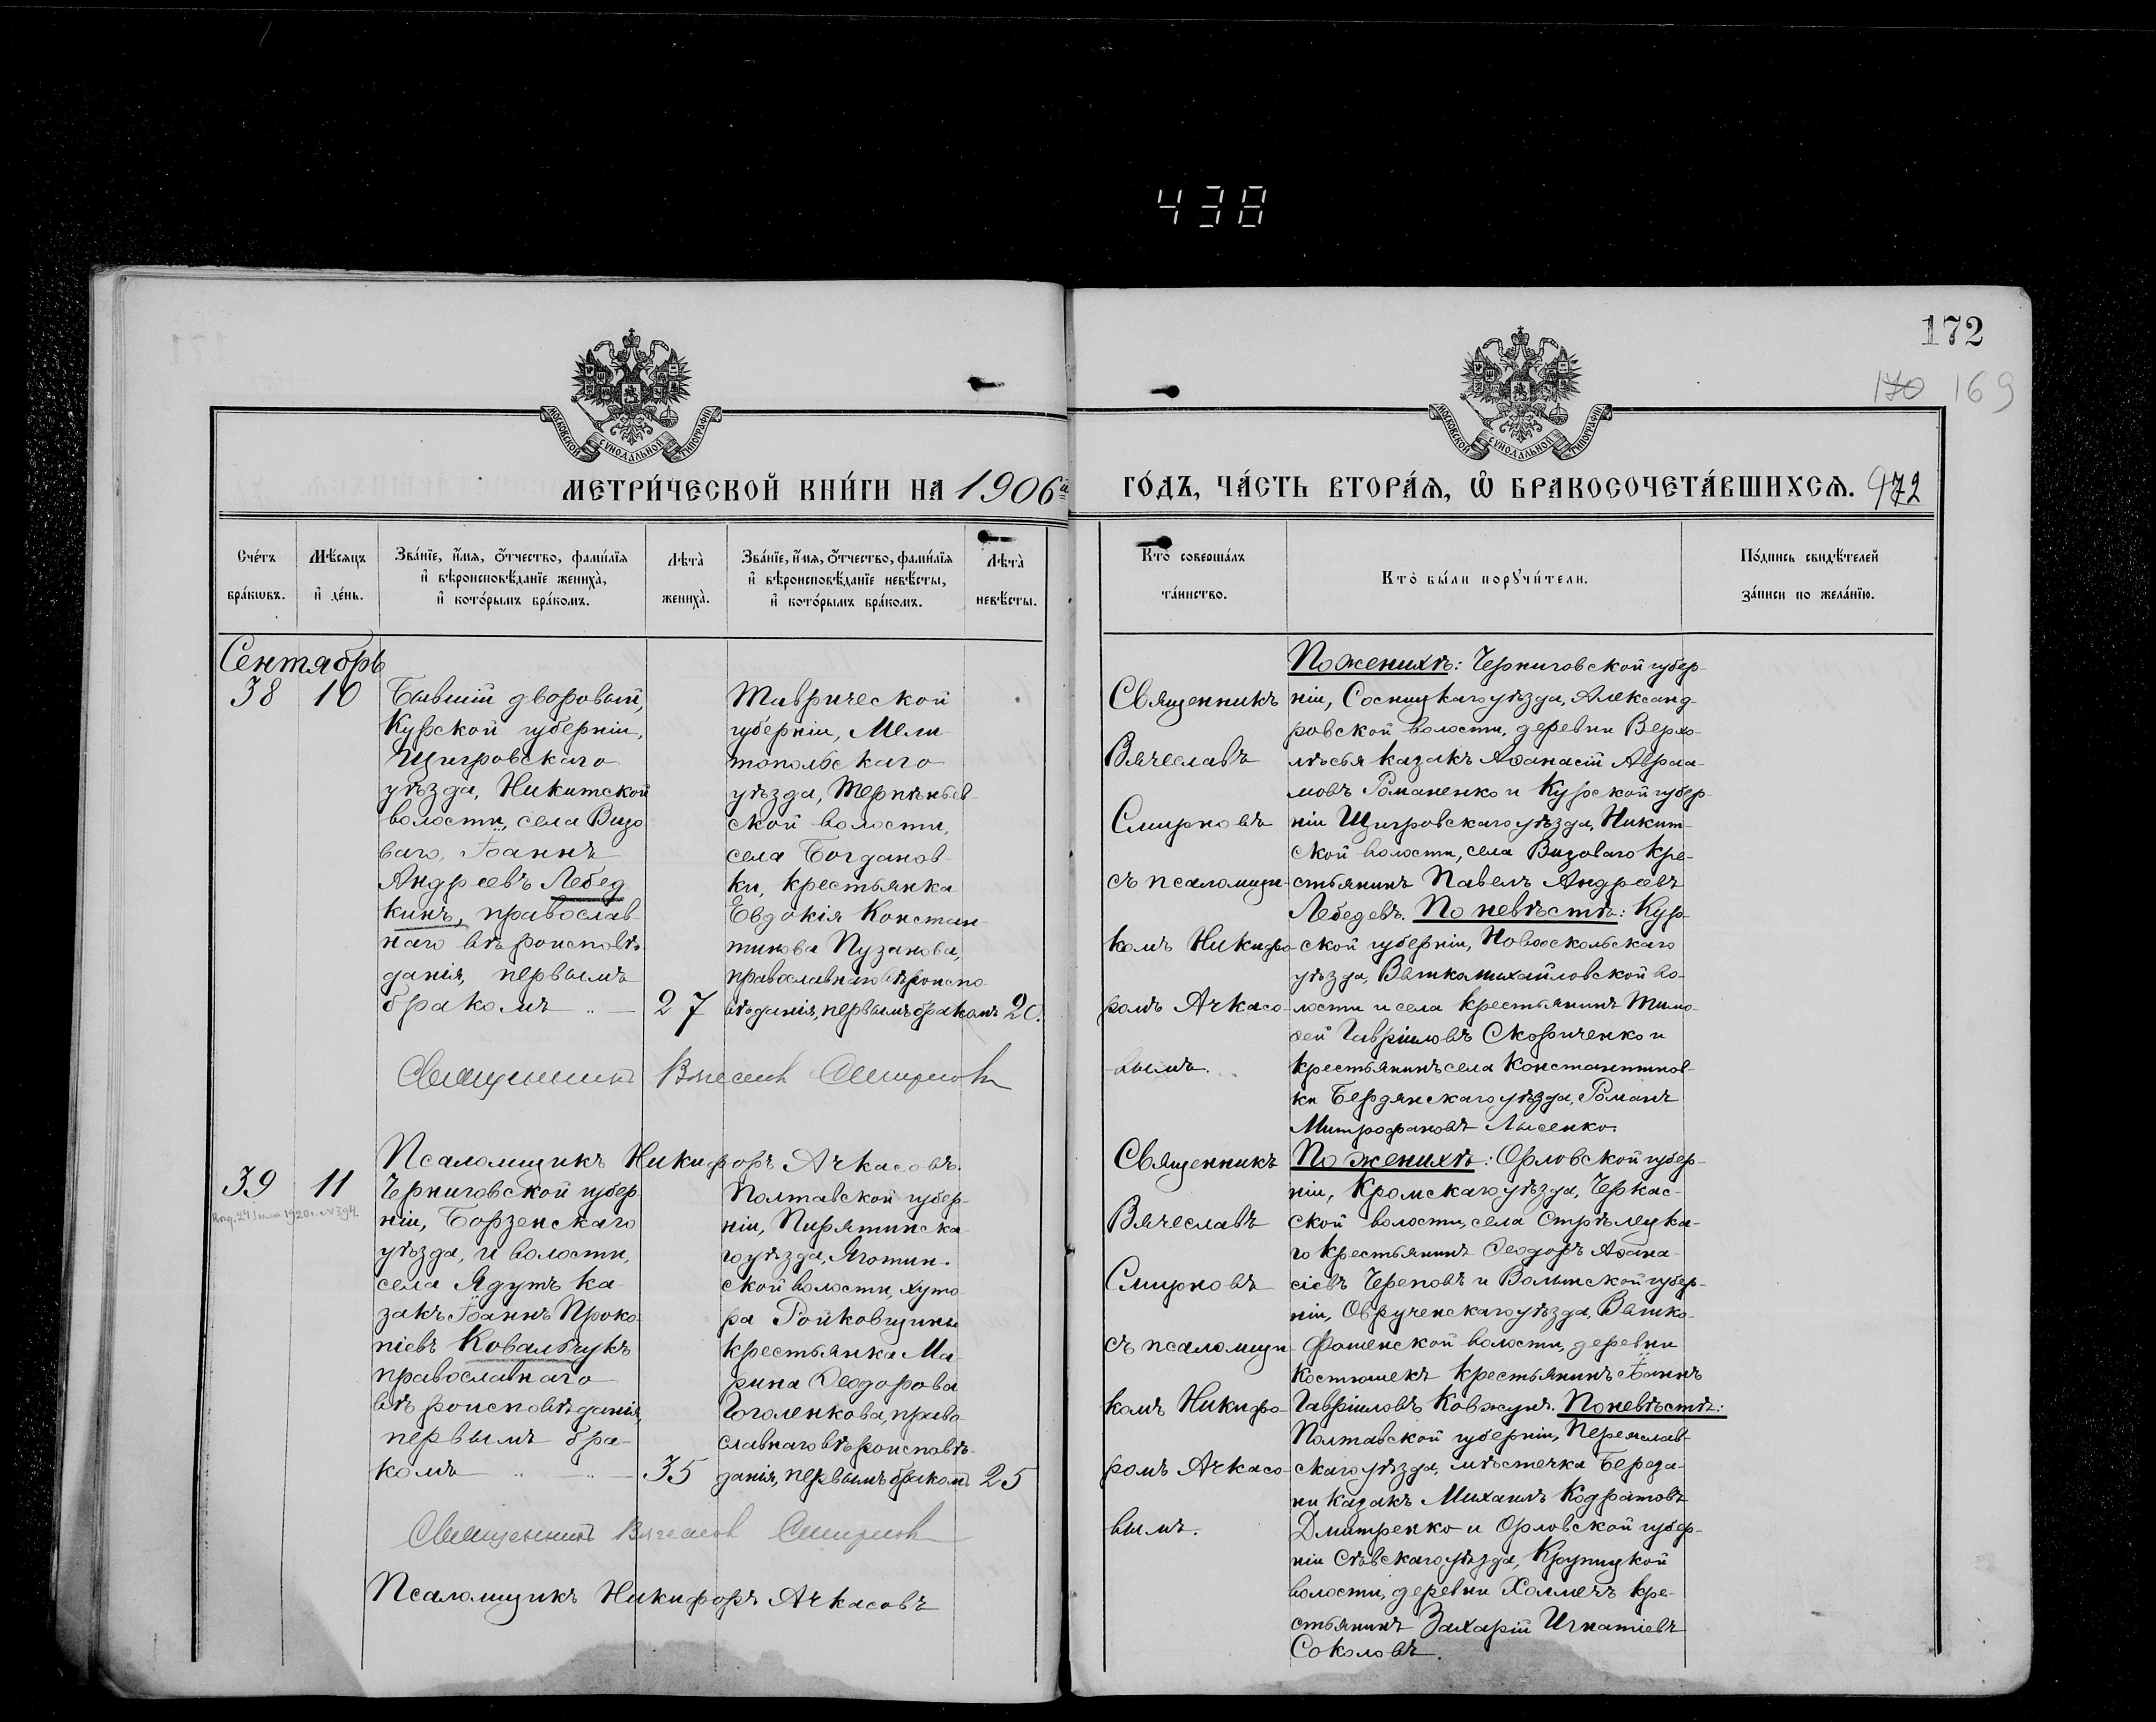 438
172
170 169
МОСКОВСКОЙ СѴНОДАЛЬНОЙ ТИПОГРАФІИ
МОСКОВСКОЙ СѴНОДАЛЬНОЙ ТИПОГРАФІИ
МЕТРИ́ЧЕСКОЙ КНИ́ГИ НА 1906й
ГО́ДЪ, ЧА́СТЬ ВТОРА́Я, Ѽ БРАКОСОЧЕТА́ВШИХСѦ. 972
Сче́тъ бра́кѡвъ.
Мѣ́сяцъ и҆ де́нь.
Зва́нїе, и҆́мя, ѻ҆́тчество, фами́лїя
и҆ вѣроисповѣ́данїе жениха̀,
и҆ кото́рымъ бра́комъ.
Лѣта̀ жениха̀.
Зва́нїе, и҆́мя, ѻ҆́тчество, фами́лїя
и҆ вѣроисповѣ́данїе невѣ́сты,
и҆ кото́рымъ бра́комъ.
Лѣта̀ невѣ́сты.
Кто̀ соверша́лъ
та́инство.
Кто̀ бы́ли порꙋчи́тели.
По́дпись свидѣ́телей
за́писи по жела́нїю.
Сентябрь
38
10
Бывшій дворовый,
Курской губерніи,
Щигровскаго
уѣзда, Никитской
волости, села Визо
ваго, Іоаннъ
Андреевъ Лебед
кинъ, православ-
наго вѣроисповѣ-
данія, первымъ
бракомъ
27
Таврической
губерніи, Мели-
топольскаго
уѣзда, Терпѣньев-
ской волости,
села Богданов-
ки, крестьянка
Евдокія Констан-
тинова Пузанова,
православнаго вѣроиспо-
вѣданія, первымъ бракомъ
20.
Священникъ Вячеславъ Смирновъ
Псаломщикъ Никифоръ Ачкасовъ.
Священникъ
Вячеславъ
Смирновъ
съ псаломщи-
комъ Никифо-
ромъ Ачкасо-
вымъ.
По женихѣ: Черниговской губер-
ніи, Сосницкаго уѣзда, Александ-
ровской волости, деревни Верхо-
лѣсья казакъ Аѳанасій Авраа-
мовъ Романенко и Курской губер-
ніи Щигровскаго уѣзда, Никит-
ской волости, села Визоваго кре-
стьянинъ Павелъ Андреевъ
Лебедевъ. По невѣстѣ: Кур-
ской губерніи, Новооскольскаго
уѣзда, Велико-михайловской во-
лости и села крестьянинъ Тимо-
ѳей Гавріиловъ Скориченко и
крестьянинъ села Константинов-
ки Бердянскаго уѣзда, Романъ
Митрофановъ Лысенко.
39
11
Черниговской губер-
ніи, Борзенскаго
уѣзда, и волости,
села Ядутъ ка-
закъ Іоаннъ Проко-
піевъ Ковальчукъ
православнаго
вѣроисповѣданія,
первымъ бра-
комъ
35
Полтавской губер-
ніи, Пирятинска-
го уѣзда, Яготин-
ской волости, хуто
ра Ройковщины
крестьянка Ма-
рина Ѳеодорова
Гоголенкова, право-
славнаго вѣроисповѣ-
данія, первымъ бракомъ
25
Священникъ Вячеславъ Смирновъ
Псаломщикъ Никифоръ Ачкасовъ
Священникъ
Вячеславъ
Смирновъ
съ псаломщи-
комъ Никифо-
ромъ Ачкасо-
вымъ.
По женихѣ: Орловской губер-
ніи, Кромскаго уѣзда, Черкас-
ской волости, села Стрѣлецка-
го крестьянинъ Ѳеодоръ Аѳана-
сіевъ Череповъ и Волынской губер-
ніи, Овручскаго уѣзда, Велико-
Фошенской волости, деревни
Костюшекъ крестьянинъ Іоаннъ
Гавріиловъ Ковжунъ. По невѣстѣ:
Полтавской губерніи, Переяслав-
скаго уѣзда, мѣстечка Береза-
ни казакъ Михаилъ Кодратовъ
Дмитренко и Орловской губер-
ніи Сѣвскаго уѣзда, Крупецкой
волости, деревни Холмечъ кре-
стьянинъ Захарій Игнатіевъ
Соколовъ.